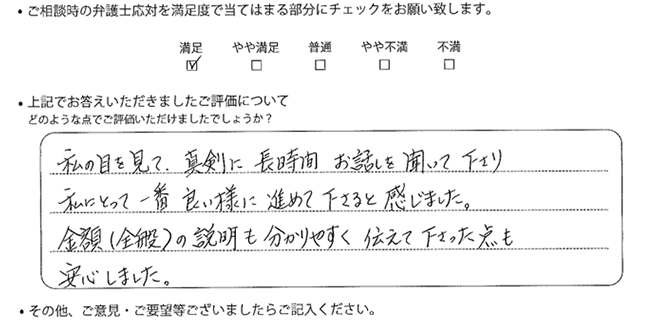 ・ご相談時の弁護士応対を満足度で当てはまる部分にチェックをお願い致します。
満足 やや満足 普通 やや不満 不満
☑ □ □ □ □
・上記でお答えいただきましたご評価について
どのような点でご評価いただけましたでしょうか？
私の目を見て、真剣に長時間お話しを聞いて下さり
私にとって一番良い様に進めて下さると感じました。
金額(全般)の説明も分かりやすく伝えて下さった点も
安心しました。
・その他、ご意見・ご要望等ございましたらご記入ください。